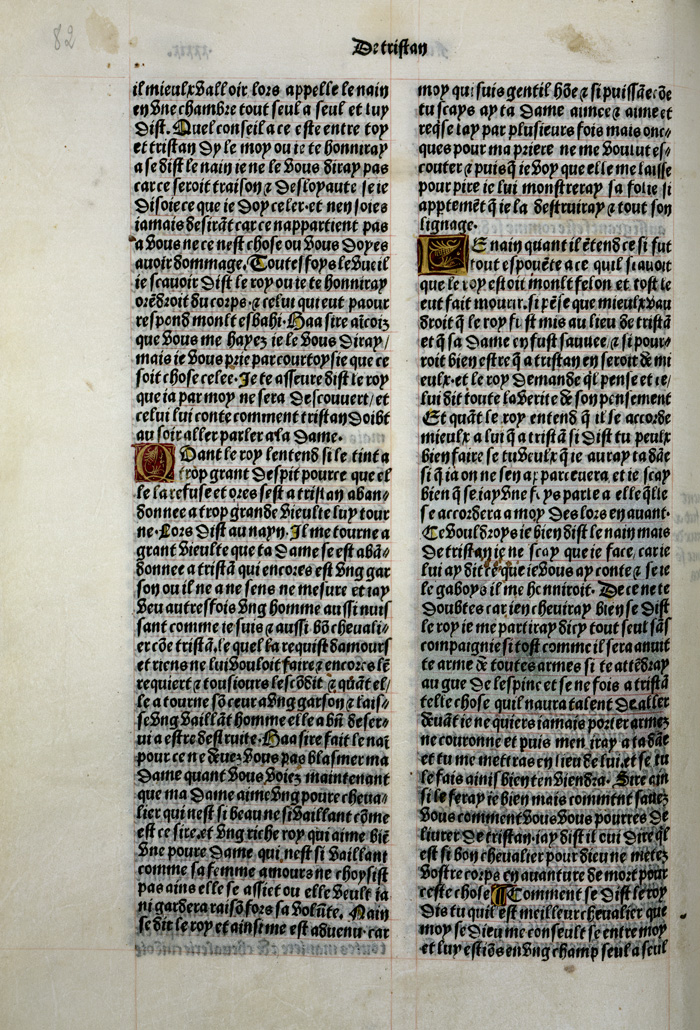 82
De tristan
il mieulx valloir lors appelle le nain
en vne chambre tout seul a seul et luy
dist. Quel conseil a ce este entre toy
et tristan dy le moy ou ie te honniray
a se dist le nain ie ne le vous diray pas
car ce seroit traison ⁊ desloyaute se ie
disoie ce que ie doy celer. et nen soies
iamais desirāt car ce nappartient pas
a vous ne ce nest chose ou vous doyes
auoir dommage. Toutesfoys le vueil
ie scauoir dist le roy ou ie te honniray
orēdroit du corps. ⁊ celui qui eut paour
respond moult esbahi. Haa sire aīcoiz
que vous me hayez ie le vous diray/
mais ie vous prie par courtoysie que ce
soit chose celee. Je te asseure dist le roy
que ia par moy ne sera descouuert/ et
celui lui conte comment tristan doibt
au soir aller parler a la dame.
Quant le roy lentend si le tint a
trop grant despit pource que el
le la refuse et ores sest a tristan aban-
donnee a trop grande vieulte luy tour
ne. Lors dist au nayn. Il me tourne a
grant vieulte que ta dame se est abā-
donnee a tristā qui encores est vng gar
son ou il ne a ne sens ne mesure et iay
veu autresfois vng homme aussi nuis
sant comme ie suis ⁊ aussi bō cheuali-
er cōe tristā. le quel la requist damours
et riens ne lui vouloit faire ⁊ encores lē
requiert ⁊ tousiours lescōdit ⁊ quāt el/
le a tourne sō ceur a vng garson ⁊ lais-
se vng vaillāt homme elle a bn̄ deser-
ui a estre destruite. Haa sire fait le nai
pour ce ne deuez vous pas blasmer ma
dame quant vous voiez maintenant
que ma dame aime vng poure cheua-
lier qui nest si beau ne si vaillant cōme
est ce sire. et vng riche roy qui aime biē
vne poure dame qui nest si vaillant
comme sa femme amours ne choysist
pas ains elle se assiet ou elle veult ia
ni gardera raisō fors sa volūte. Nain
se dit le roy et ainsi me est aduenu. car
moy qui suis gentil hōe ⁊ si puissāt cōe
tu scays ay ta dame aincee ⁊ aime et
reqise lay par plusieurs fois mais onc-
ques pour ma priere ne me voulut es-
couter ⁊ puis q̄ ie voy que elle me laisse
pour pire ie lui monstreray sa folie si
appertemēt q̄ ie la destruiray ⁊ tout son
lignage.
LE nain quant il ētend ce si fut
tout espouēte a ce quil sauoit
que le roy estoit moult felon et tost le
eut fait mourir. si pēse que mieulx vau
droit q̄ le roy fust mis au lieu de tristā
et q̄ sa dame en fust sauuee/ ⁊ si pour-
roit bien estre q̄ a tristan en seroit de mi
eulx. et le roy demande ql̄ pense et ce/
lui dit toute la verite de son pensement
Et quāt le roy entend q̄ il se accorde
mieulx a lui q̄ a tristā si dist tu peulx
bien faire se tu veulx q̄ ie auray ta dāe
si q̄ ia on ne sen aparceuera. et ie scay
bien q̄ se iay vne foys parle a elle q̄lle
se accordera a moy des lors en auant.
Ce vouldroys ie bien dist le nain mais
de tristan ie ne scay que ie face. car ie
lui ay dit ce que ie vous ay conte ⁊ se ie
le gaboys il me honniroit. De ce ne te
doubtes car ien cheuiray bien se dist
le roy ie me partiray dicy tout seul sās
compaignie si tost comme il sera anuit
te arme de toutes armes si te attēdray
au gue de lespine et se ne fois a tristā
telle chose quil naura talent de aller
deuāt ie ne quiers iamais porter armez
ne couronne et puis men iray a ta dāe
et tu me mettras en lieu de lui. et se tu
le fais ainsi bien ten viendra. Sire ain
si le feray ie bien mais commēt sauez
vous comment vous vous pourres de
liurer de tristan. iay dist il oui dire ql̄
est si bon cheualier pour dieu ne metez
vostre corps en auanture de mort pour
ceste chose ¶ Comment se dist le roy
dis tu quil est meilleur cheualier que
moy se dieu me conseult se entre moy
et luy estiōs en vng champ seul a seul